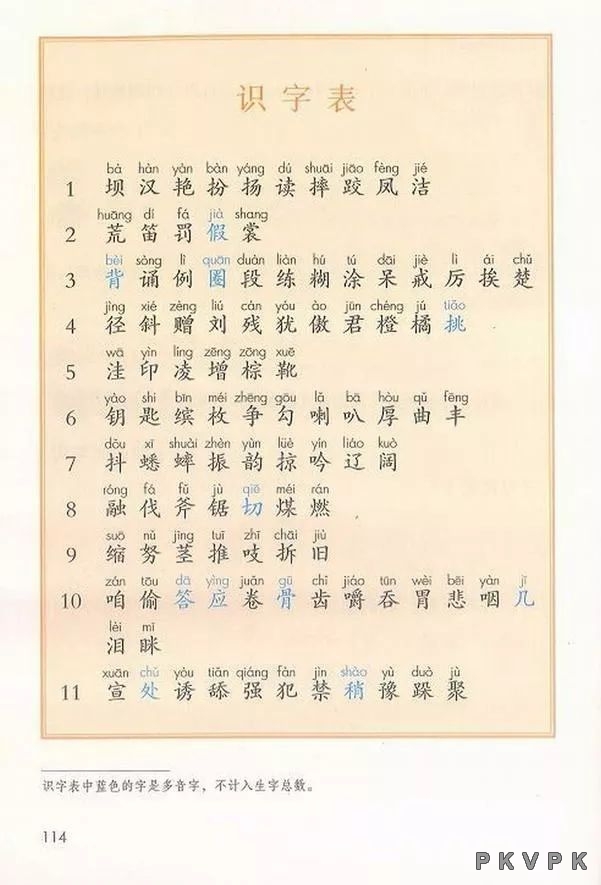 识字表
bà hàn yàn bàn yáng dú shuāi jiāo fèng jié
1 坝 汉 艳 扮 扬 读 摔 跤 凤 洁
huāng dí fá jià shang
2 荒 笛 罚 假 裳
bèi sòng lì quān duàn liàn hú tú dāi jiè lì ái chǔ
3 背 诵 例 圈 段 练 糊 涂 呆 戒 厉 挨 楚
jìng xié zèng liú cán yóu ào jūn chéng jú tiāo
4 径 斜 赠 刘 残 犹 傲 君 橙 橘 挑
wā yìn líng zēng zōng xuē
5 洼 印 凌 增 棕 靴
yào shi bīn méi zhēng gōu lǎ bā hòu qǔ fēng
6 钥 匙 缤 枚 争 勾 喇 叭 厚 曲 丰
dǒu xī shuài zhèn yùn lüè yín liáo kuò
7 抖 蟋 蟀 振 韵 掠 吟 辽 阔
róng fá fǔ jù qiē méi rán
8 融 伐 斧 锯 切 煤 燃
suō nǔ jīng tuī zhī chāi jiù
9 缩 努 茎 推 吱 拆 旧
zán tōu dā yìng juàn gǔ chǐ jiáo tūn wèi bēi yàn jǐ
10 咱 偷 答 应 卷 骨 齿 嚼 吞 胃 悲 咽 几
lèi mī
泪 眯
xuān chǔ yòu tiǎn qiáng fàn jìn shào yù duò jù
11 宣 处 诱 舔 强 犯 禁 稍 豫 跺 聚
识字表中蓝色的字是多音字，不计入生字总数。
114
PKVPK